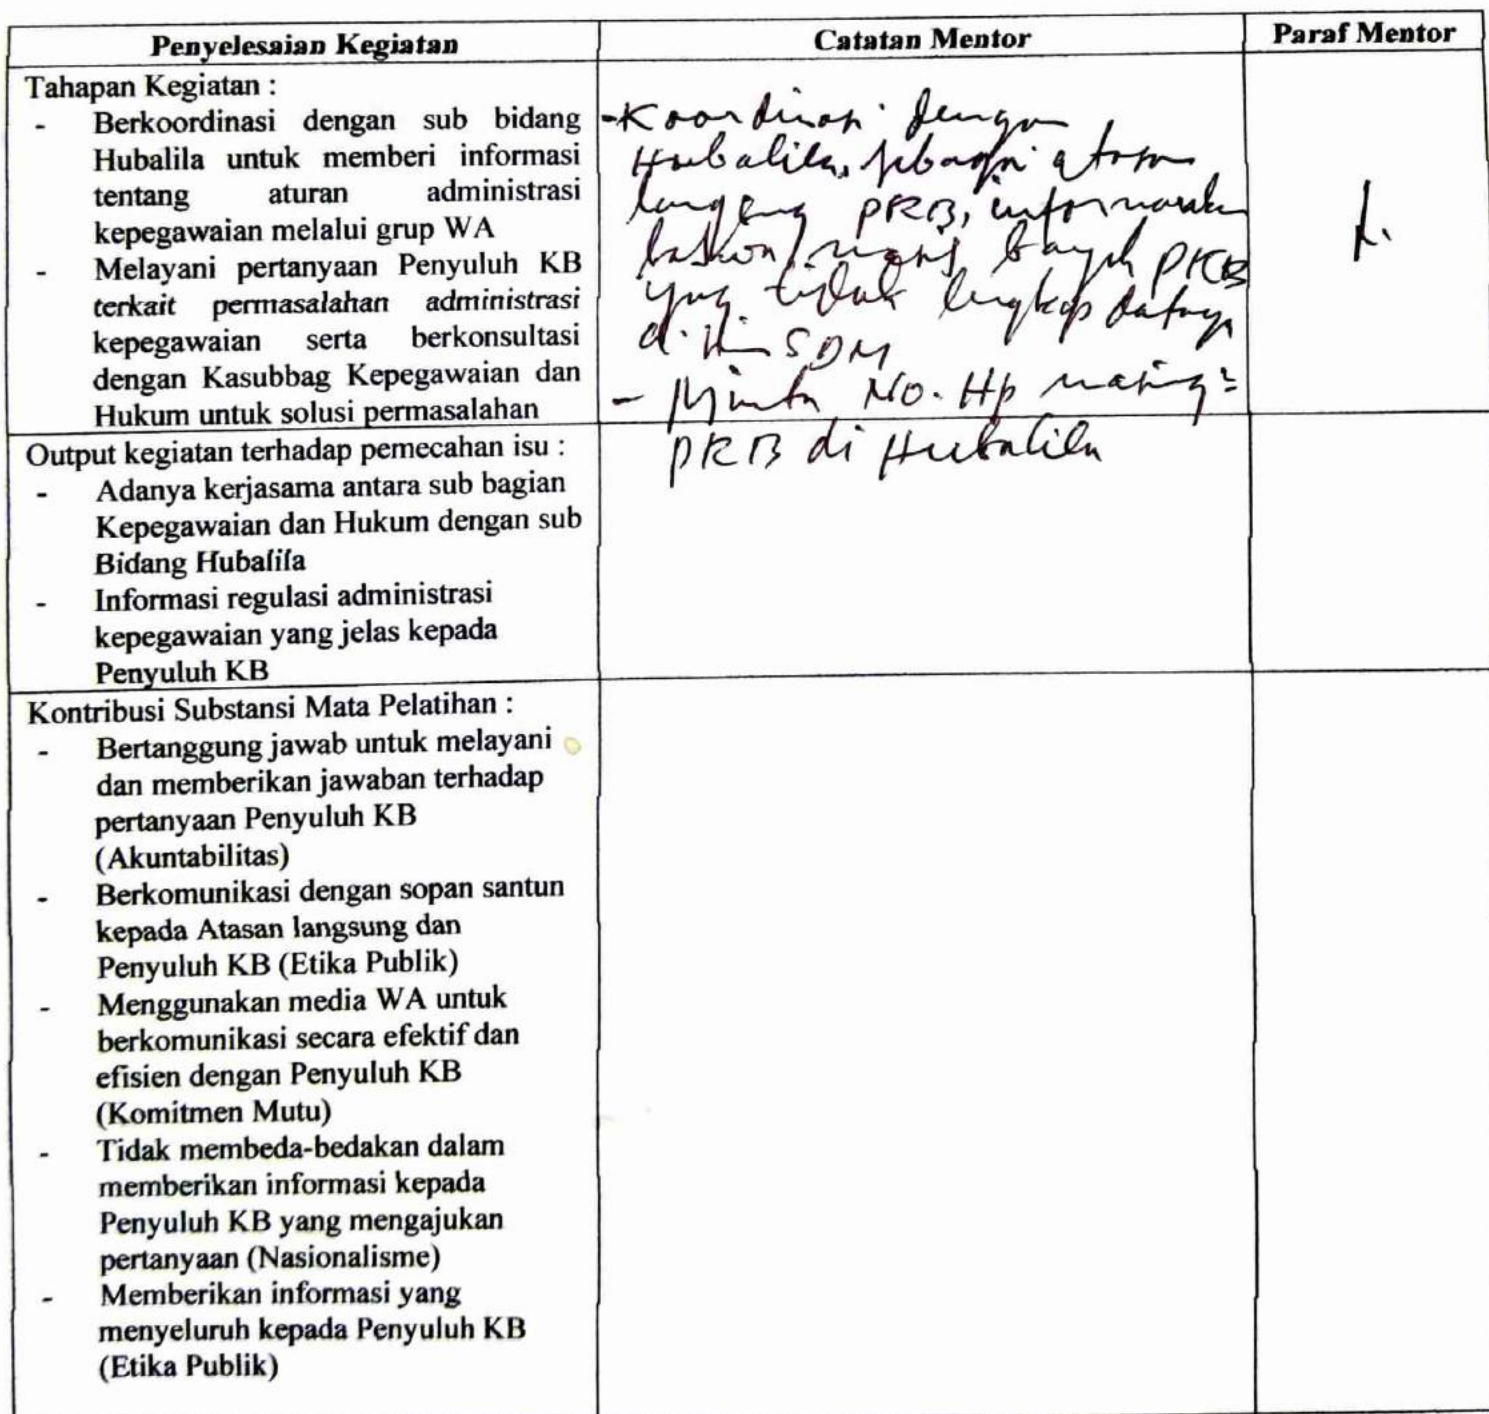 Penyelesaian Kegiatan
Catatan Mentor
Paraf Mentor
Tahapan Kegiatan :
- Berkoordinasi dengan sub bidang
Hubalila untuk memberi informasi
tentang aturan administrasi
kepegawaian melalui grup WA
- Melayani pertanyaan Penyuluh KB
terkait permasalahan administrasi
kepegawaian serta berkonsultasi
dengan Kasubbag Kepegawaian dan
Hukum untuk solusi permasalahan
- Koordinasi dengan
Hubalila, sebagai atasan
langsung PKB, informasikan
bahwa banyak PKB
yang tidak lengkap datanya
di SDM
- Minta No. Hp masing²
PKB di Hubalila
Output kegiatan terhadap pemecahan isu :
- Adanya kerjasama antara sub bagian
Kepegawaian dan Hukum dengan sub
Bidang Hubalila
- Informasi regulasi administrasi
kepegawaian yang jelas kepada
Penyuluh KB
Kontribusi Substansi Mata Pelatihan :
- Bertanggung jawab untuk melayani
dan memberikan jawaban terhadap
pertanyaan Penyuluh KB
(Akuntabilitas)
- Berkomunikasi dengan sopan santun
kepada Atasan langsung dan
Penyuluh KB (Etika Publik)
- Menggunakan media WA untuk
berkomunikasi secara efektif dan
efisien dengan Penyuluh KB
(Komitmen Mutu)
- Tidak membeda-bedakan dalam
memberikan informasi kepada
Penyuluh KB yang mengajukan
pertanyaan (Nasionalisme)
- Memberikan informasi yang
menyeluruh kepada Penyuluh KB
(Etika Publik)